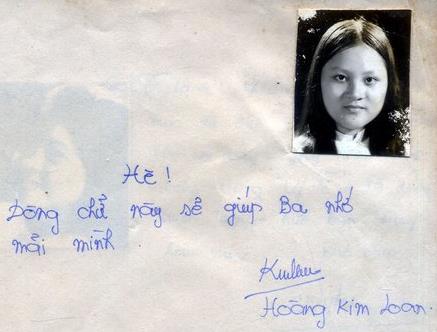 Hề!
Dòng chữ này sẽ giúp Ba nhớ
mãi mình
Hoàng Kim Loan.